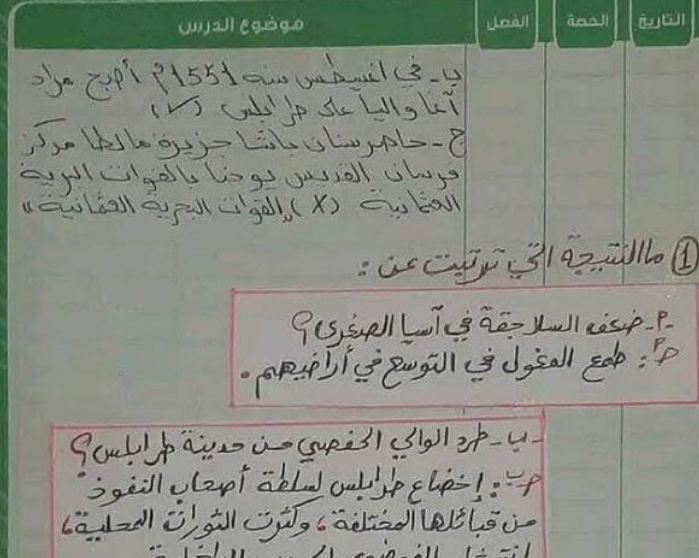 التاريخ الحصة الفصل موضوع الدرس
ب- في اغسطس سنه 1551م أصبح مراد
آغا والياً على طرابلس (✓)
ج- حاصر سنان باشا جزيرة مالطا مركز
فرسان القديس يوحنا بالقوات البرية
العثمانية (X) "القوات البحرية العثمانية"
① ما النتيجة التي ترتبت عن :
-أ- ضعف السلاجقة في آسيا الصغرى؟
ج أ: طمع المغول في التوسع في أراضيهم .
-ب- طرد الوالي الحفصي من مدينة طرابلس؟
ج ب: إخضاع طرابلس لسلطة أصحاب النفوذ
من قبائلها المختلفة، وكثرت الثورات المحلية،